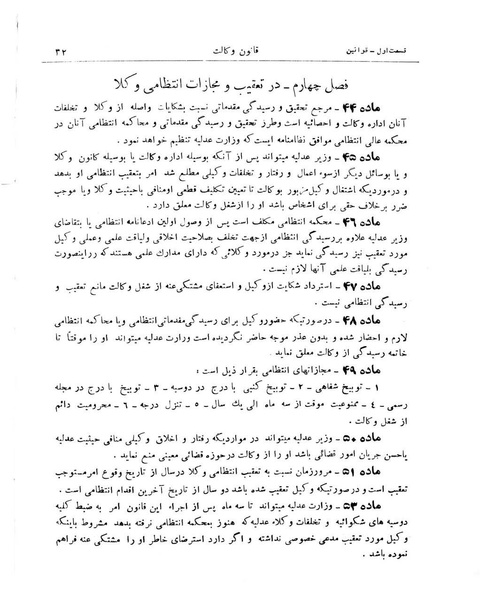 قسمت اول ـ قوانین قانون وکالت ۳۲
فصل چهارم ـ در تعقیب و مجازات انتظامی وکلا
ماده ۴۴ ـ مرجع تحقیق و رسیدگی مقدماتی نسبت بشکایات واصله از وکلا و تخلفات
آنان اداره وکالت و احصائیه است وطرز تحقیق و رسیدگی مقدماتی و محاکمه انتظامی آنان در
محکمه عالی انتظامی موافق نظامنامه ایست که وزارت عدلیه تنظیم خواهد نمود .
ماده ۴۵ ـ وزیر عدلیه میتواند پس از آنکه بوسیله اداره وکالت یا بوسیله کانون وکلا
و یا بوسائل دیگر ازسوء اعمال و رفتار و تخلفات وکیلی مطلع شد امر بتعقیب انتظامی او بدهد
و درموردیکه اشتغال وکیل مزبور بوکالت تا تعیین تکلیف قطعی اومنافی باحیثیت وکلا ویا موجب
ضرر برخلاف حقی برای اشخاص باشد او را ازشغل وکالت معلق دارد .
ماده ۴۶ ـ محکمه انتظامی مکلف است پس از وصول اولین ادعانامه انتظامی یا بتقاضای
وزیر عدلیه علاوه بررسیدگی انتظامی ازجهت تخلف بصلاحیت اخلاقی ولیاقت علمی وعملی وکیل
مورد تعقیب نیز رسیدگی نماید جز درمورد وکلائی که دارای مدارک علمی هستند که دراینصورت
رسیدگی بلیاقت علمی آنها لازم نیست .
ماده ۴۷ ـ استرداد شکایت ازوکیل و استعفای مشتکی عنه از شغل وکالت مانع تعقیب و
رسیدگی انتظامی نیست .
ماده ۴۸ ـ درصورتیکه حضور وکیل برای رسیدگی مقدماتی انتظامی ویا محاکمه انتظامی
لازم و احضار شده و بدون عذر موجه حاضر نگردیده است وزارت عدلیه میتواند او را موقتاً تا
خاتمه رسیدگی از وکالت معلق نماید .
ماده ۴۹ ـ مجازاتهای انتظامی بقرار ذیل است :
۱ ـ توبیخ شفاهی ـ ۲ ـ توبیخ کتبی با درج در دوسیه ـ ۳ ـ توبیخ با درج در مجله
رسمی ـ ٤ ـ ممنوعیت موقت از سه ماه الی یك سال ـ ۵ ـ تنزل درجه ـ ٦ ـ محرومیت دائم
از شغل وکالت .
ماده ۵۰ ـ وزیر عدلیه میتواند در مواردیکه رفتار و اخلاق وکیلی منافی حیثیت عدلیه
یاحسن جریان امور قضائی باشد او را از وکالت درحوزه قضائی معینی منع نماید .
ماده ۵۱ ـ مرورزمان نسبت به تعقیب انتظامی وکلا درسال از تاریخ وقوع امرمستوجب
تعقیب است و درصورتیکه وکیل تعقیب شده باشد دو سال از تاریخ آخرین اقدام انتظامی است .
ماده ۵۳ ـ وزارت عدلیه میتواند تا سه ماه پس از اجراء این قانون امر به ضبط کلیه
دوسیه های شکوائیه و تخلفات وکلاء عدلیه که هنوز بمحکمه انتظامی نرفته بدهد مشروط باینکه
وکیل مورد تعقیب مدعی خصوصی نداشته و اگر دارد استرضای خاطر او را مشتکی عنه فراهم
نموده باشد .